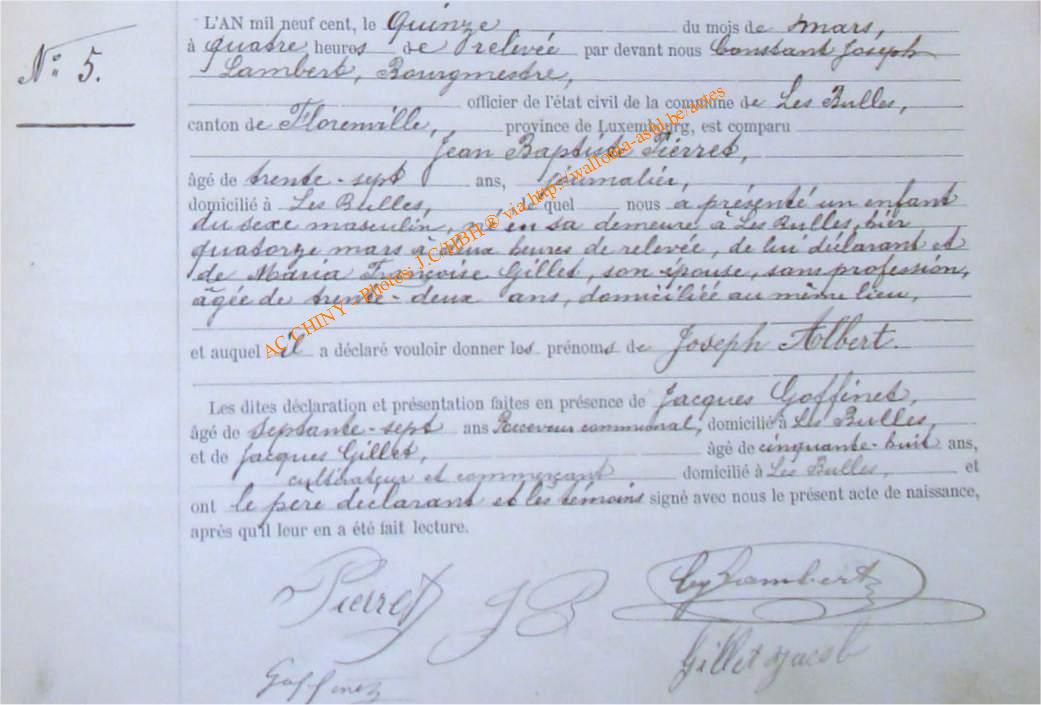 N° 5.
L'AN mil neuf cent, le Quinze du mois de mars,
à quatre heures de relevée par devant nous Constant Joseph
Lambert, Bourgmestre,
officier de l'état civil de la commune de Les Bulles,
canton de Florenville, province de Luxembourg, est comparu
Jean Baptiste Pierret,
âgé de trente-sept ans, journalier,
domicilié à Les Bulles, lequel nous a présenté un enfant
du sexe masculin, né en sa demeure à Les Bulles, hier
quatorze mars à deux heures de relevée, de lui déclarant et
de Maria Françoise Gillet, son épouse, sans profession,
âgée de trente-deux ans, domiciliée au même lieu,
et auquel il a déclaré vouloir donner les prénoms de Joseph Albert.
Les dites déclaration et présentation faites en présence de Jacques Goffinet,
âgé de septante-sept ans Receveur communal, domicilié à Les Bulles,
et de Jacques Gillet, âgé de cinquante-huit ans,
cultivateur et commerçant domicilié à Les Bulles, et
ont le père déclarant et les témoins signé avec nous le présent acte de naissance,
après qu'il leur en a été fait lecture.
Pierret J B Lambert
Gillet Jacob
Goffinet
AC CHINY - Photos: J.C HBH © via http://wallonia-asbl.be/actes